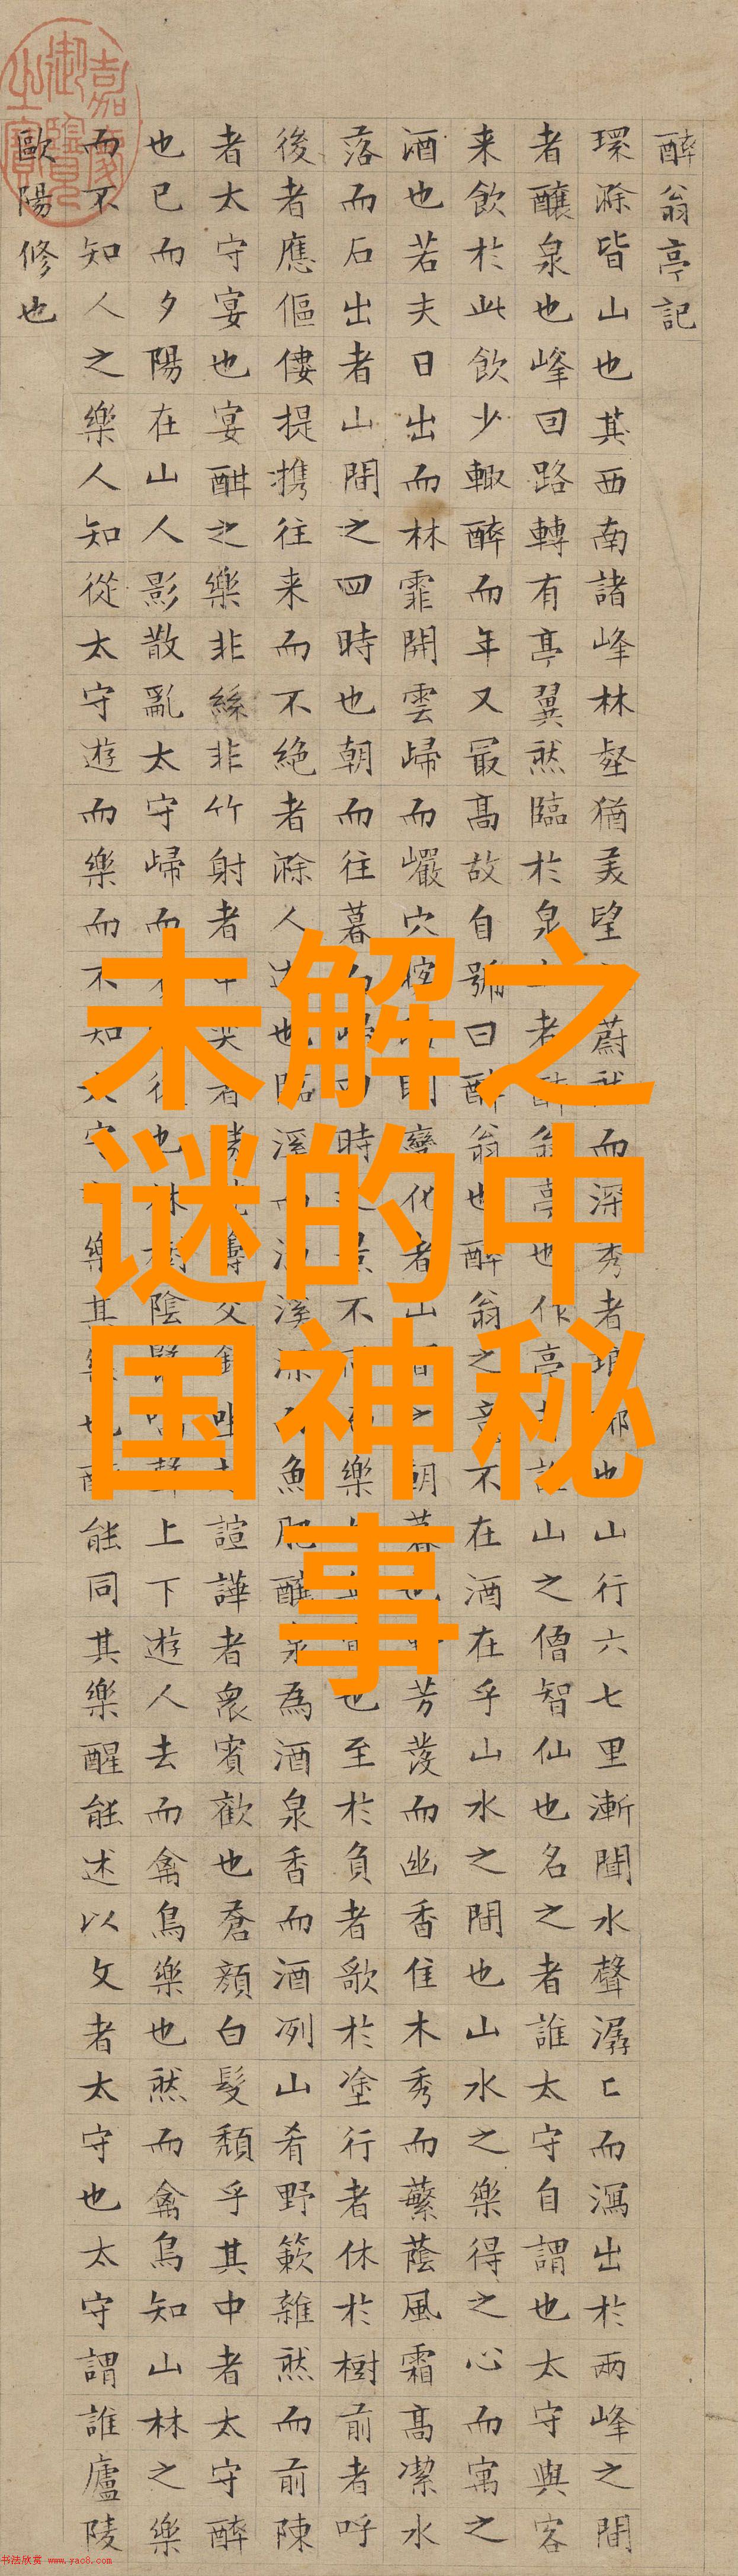 醉翁亭記
環滁皆山也其西南諸峰林壑猶美望蔚然而深秀者琅琊也山行六七里漸聞水聲潺〻而瀉出於兩峰之間
者釀泉也峰回路轉有亭翼然臨於泉上者醉翁亭也作亭者誰山之僧智仙也名之者誰太守自謂也太守與客
来飲於此飲少輙醉而年又最高故自號曰醉翁也醉翁之意不在酒在乎山水之間也山水之樂得之心而寓之
酒也若夫日出而林霏開雲歸而巖穴明變化者山之朝暮也芳發而幽香佳木秀而蘩蔭風霜高潔水
落而石出者山間之四時也朝而往暮而歸四時之景不同而樂也至於負者歌於塗行者休於樹前者呼
後者應傴僂提携往来而不絶者滁人遊也臨溪而漁溪深而魚肥釀泉為酒泉香而酒冽山肴野簌雜然而前陳
者太守宴也宴酣之樂非絲非竹射者中奕者勝籌交錯坐諠譁者衆賓歡也蒼顏白髮頹乎其中者太守醉
也已而夕陽在山人影散亂太守歸而從也林樹陰翳鳴聲上下遊人去而禽鳥樂也然而禽鳥知山林之樂
而不知人之樂人知從太守遊而樂而不知太守樂其樂也醉能同其樂醒能述以文者太守也太守謂誰廬陵
歐陽修也
嘉慶御覽之寶
未解之
谜的中
国神秘
事
书法欣赏 www.yac8.com